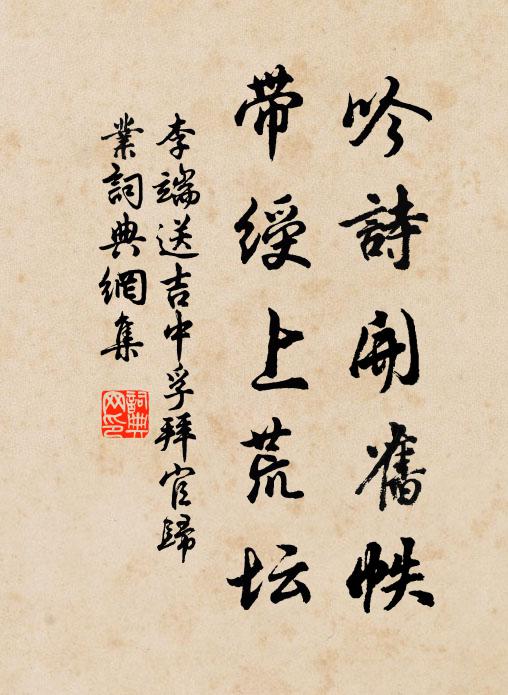 吟詩開舊帙
帶綬上荒坛
李端送吉中孚拜官歸
業詞典網集
詞典网印